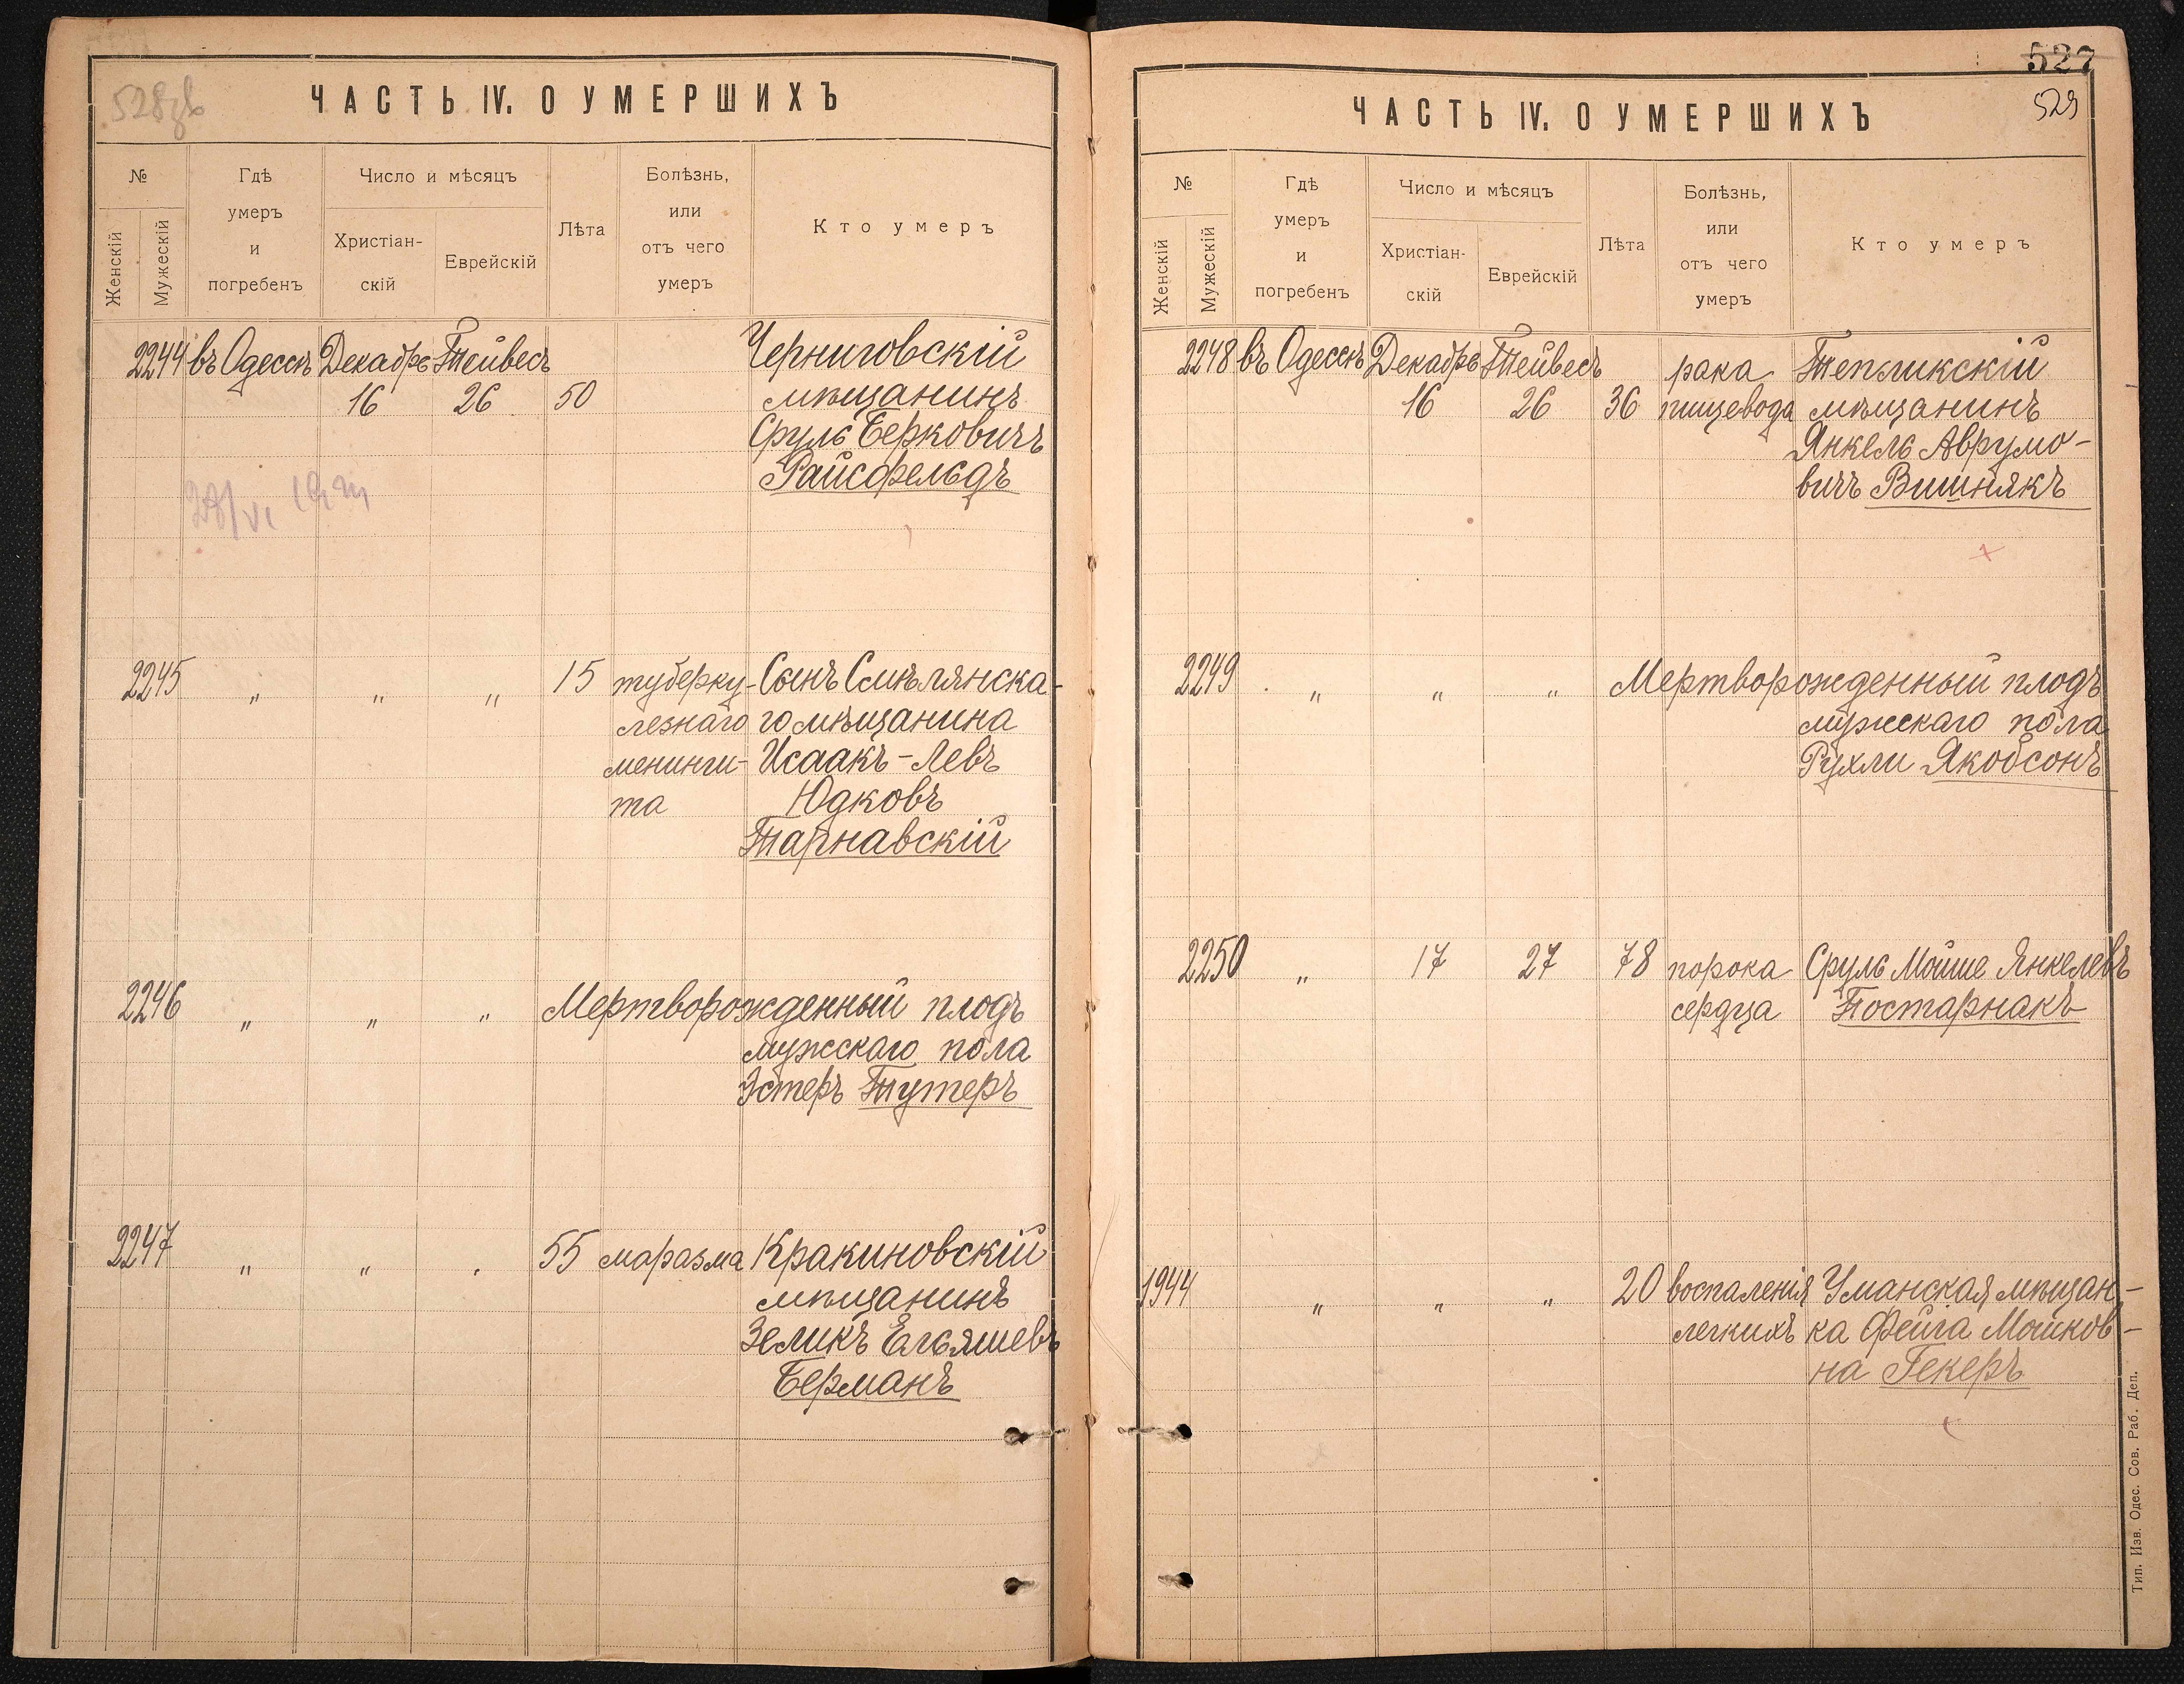 ЧАСТЬ IV. О УМЕРШИХЪ
№
Женскій
Мужескій
Гдѣ
умеръ
и
погребенъ
Число и мѣсяцъ
Христіан-
скій
Еврейскій
Лѣта
Болѣзнь,
или
отъ чего
умеръ
Кто умеръ
2244 въ Одессѣ Декабрь Тейвесъ Черниговскій
16 26 50 мѣщанинъ
Сруль Берковичъ
Райсфельдъ
2245 „ „ „ 15 туберку- Сынъ Смѣлянска-
лезнаго го мѣщанина
менинги- Исаакъ-Левъ
та Юдковъ
Тарнавскій
2246 „ „ „ Мертворожденный плодъ
мужскаго пола
Эстеръ Тутеръ
2247 „ „ „ 55 маразма Кракиновскій
мѣщанинъ
Зеликъ Ельяшевъ
Берманъ
527
529
ЧАСТЬ IV. О УМЕРШИХЪ
№
Женскій
Мужескій
Гдѣ
умеръ
и
погребенъ
Число и мѣсяцъ
Христіан-
скій
Еврейскій
Лѣта
Болѣзнь,
или
отъ чего
умеръ
Кто умеръ
2248 въ Одессѣ Декабрь Тейвесъ рака Тепликскій
16 26 36 пищевода мѣщанинъ
Янкель Аврумо-
вичъ Вишнякъ
2249 „ „ „ Мертворожденный плодъ
мужскаго пола
Рухли Якобсонъ
2250 „ 17 27 78 порока Сруль Мойше Янкелевъ
сердца Постарнакъ
1944 „ „ „ 20 воспаленія Уманская мѣщан-
легкихъ ка Фейга Мошков-
на Гекеръ
Тип. Изв. Одес. Сов. Раб. Деп.